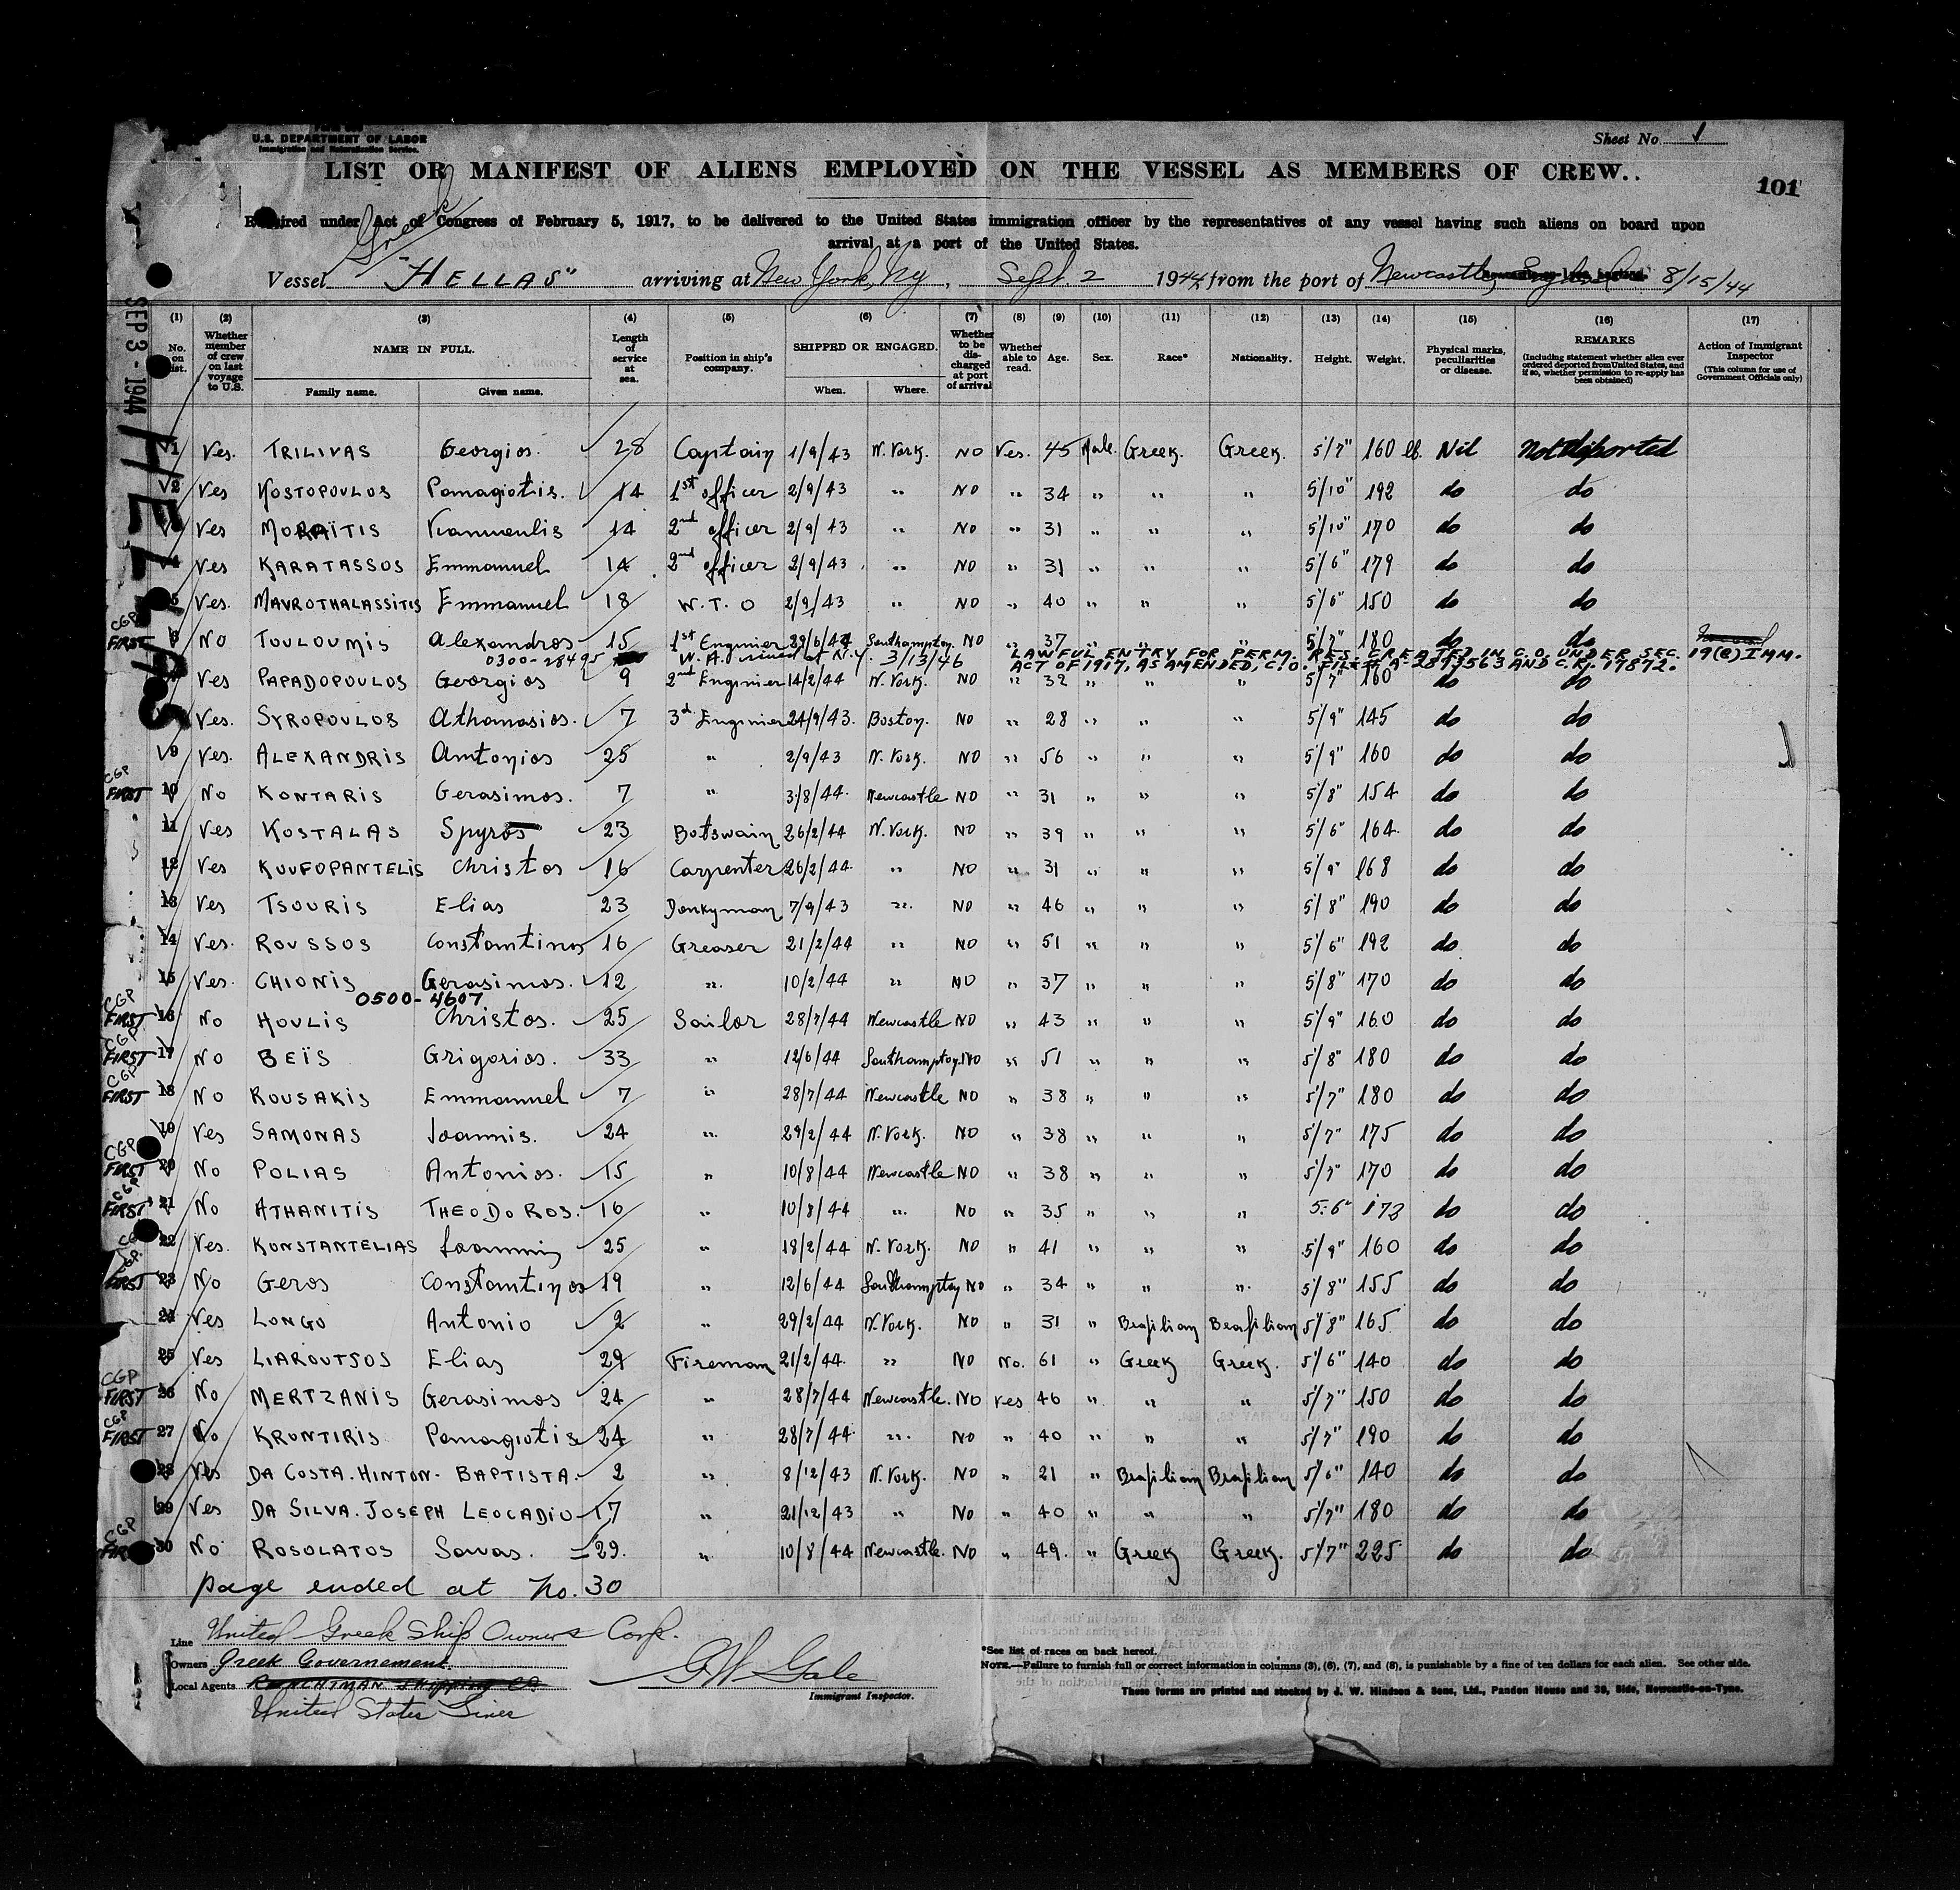 U.S. DEPARTMENT OF LABOR
Immigration and Naturalization Service.
Sheet No. 1
LIST OR MANIFEST OF ALIENS EMPLOYED ON THE VESSEL AS MEMBERS OF CREW..
101
Required under Act of Congress of February 5, 1917, to be delivered to the United States immigration officer by the representatives of any vessel having such aliens on board upon
arrival at a port of the United States.
Greek
Vessel "HELLAS" arriving at New York, Ny, Sept. 2 1944 from the port of Newcastle, England 8/15/44
SEP 3 - 1944
HELLAS
(1) (2) (3) (4) (5) (6) (7) (8) (9) (10) (11) (12) (13) (14) (15) (16) (17)
No. on list. Whether member of crew on last voyage to U.S. NAME IN FULL. Family name. Given name. Length of service at sea. Position in ship's company. SHIPPED OR ENGAGED. When. Where. Whether to be discharged at port of arrival Whether able to read. Age. Sex. Race* Nationality. Height. Weight. Physical marks, peculiarities or disease. REMARKS (Including statement whether alien ever ordered deported from United States, and if so, whether permission to re-apply has been obtained) Action of Immigrant Inspector (This column for use of Government Officials only)
1 Yes. TRILIVAS Georgios. 28 Captain 1/9/43 N. York. NO Yes. 45 Male. Greek. Greek. 5'/7" 160 lb. Nil Not deported
2 Yes KOSTOPOULOS Panagiotis. 14 1st officer 2/9/43 " NO " 34 " " " 5'/10" 192 do do
Yes MORAÏTIS 14 2nd officer 2/9/43 " NO " 31 " " " 5'/10" 170 do do
4 Yes KARATASSOS Emmanuel 14 2nd officer 2/9/43 " NO " 31 " " " 5'/6" 179 do do
5 Yes. MAVROTHALASSITIS Emmanuel 18 W.T.O 2/9/43 " NO " 40 " " " 5'/6" 150 do do
CGP FIRST 6 No TOULOUMIS Alexandros 15 1st Enginier 29/6/44 Southampton. NO " 37 " " " 5'/7" 180 do do
0300-28495 W.A. issued at N.Y. 3/13/46 LAWFUL ENTRY FOR PERM. RES. CREATED IN C.O. UNDER SEC. 19(c) IMM.
ACT OF 1917, AS AMENDED, C.O. FILE # A-2893563 AND C.R. 17872.
Yes PAPADOPOULOS Georgios 9 2nd Enginier 14/2/44 N. York. NO " 32 " " " 5'/7" 160 do do
Yes. SYROPOULOS Athanasios. 7 3d Enginier 24/9/43. Boston. NO " 28 " " " 5'/9" 145 do do
9 Yes. ALEXANDRIS Antonios 25 " 2/9/43 N. York. NO " 56 " " " 5'/9" 160 do do
CGP FIRST 10 No KONTARIS Gerasimos. 7 " 3/8/44. Newcastle NO " 31 " " " 5'/8" 154 do do
11 Yes KOSTALAS Spyros 23 Botswain 26/2/44 N. York. NO " 39 " " " 5'/6" 164. do do
12 Yes KOUFOPANTELIS Christos 16 Carpenter 26/2/44. " NO " 31 " " " 5'/9" 168 do do
13 Yes TSOURIS Elias 23 Donkyman 7/9/43 " NO " 46 " " " 5'/8" 190 do do
14 Yes. ROUSSOS Constantinos 16 Greaser 21/2/44 " NO " 51 " " " 5'/6" 192 do do
15 Yes. CHIONIS Gerasimos. 12 " 10/2/44 " NO " 37 " " " 5'/8" 170 do do
0500-4607
CGP FIRST 16 No HOULIS Christos. 25 Sailor 28/7/44 Newcastle NO " 43 " " " 5'/9" 160 do do
CGP FIRST 17 No BEÏS Grigorios. 33 " 12/6/44 Southampton. NO " 51 " " " 5'/8" 180 do do
CGP FIRST 18 No ROUSAKIS Emmanuel 7 " 28/7/44 Newcastle NO " 38 " " " 5'/7" 180 do do
19 Yes SAMONAS Joannis. 24 " 29/2/44 N. York. NO " 38 " " " 5'/7" 175 do do
CGP FIRST 20 No POLIAS Antonios. 15 " 10/8/44 Newcastle NO " 38 " " " 5'/7" 170 do do
CGP FIRST 21 No ATHANITIS THEODOROS. 16 " 10/8/44 " NO " 35 " " " 5:6" 173 do do
22 Yes. KONSTANTELIAS Joannis 25 " 18/2/44 N. York. NO " 41 " " " 5'/9" 160 do do
CGP FIRST 23 No Geros Constantinos 19 " 12/6/44 Southampton NO " 34 " " " 5'/8" 155 do do
24 Yes LONGO Antonio 2 " 29/2/44 N. York. NO " 31 " Brasilian Brasilian 5'/8" 165 do do
25 Yes LIAROUTSOS Elias 29 Fireman 21/2/44. " NO No. 61 " Greek Greek. 5'/6" 140 do do
CGP FIRST 26 No MERTZANIS Gerasimos 24 " 28/7/44 Newcastle. NO Yes 46 " " " 5'/7" 150 do do
CGP FIRST 27 No KRONTIRIS Panagiotis 24 " 28/7/44. " NO " 40 " " " 5'/7" 190 do do
28 Yes DA COSTA. HINTON. BAPTISTA. 2 " 8/12/43 N. York. NO " 21 " Brasilian Brasilian 5'/6" 140 do do
29 Yes DA SILVA. JOSEPH LEOCADIO 17 " 21/12/43 " NO " 40 " " " 5'/7" 180 do do
CGP FIRST 30 No ROSOLATOS Savas. 29. " 10/8/44 Newcastle. NO " 49. " Greek Greek. 5'/7" 225 do do
page ended at no. 30
Line United Greek Ship Owners Corp.
Owners Greek Governement.
Local Agents SHIPPING CO.
United States Lines
G W Gale
Immigrant Inspector.
*See list of races on back hereof.
NOTE.—Failure to furnish full or correct information in columns (3), (6), (7), and (8), is punishable by a fine of ten dollars for each alien. See other side.
These forms are printed and stocked by J. W. Hindson & Sons, Ltd., Pandon House and 30, Side, Newcastle-on-Tyne.